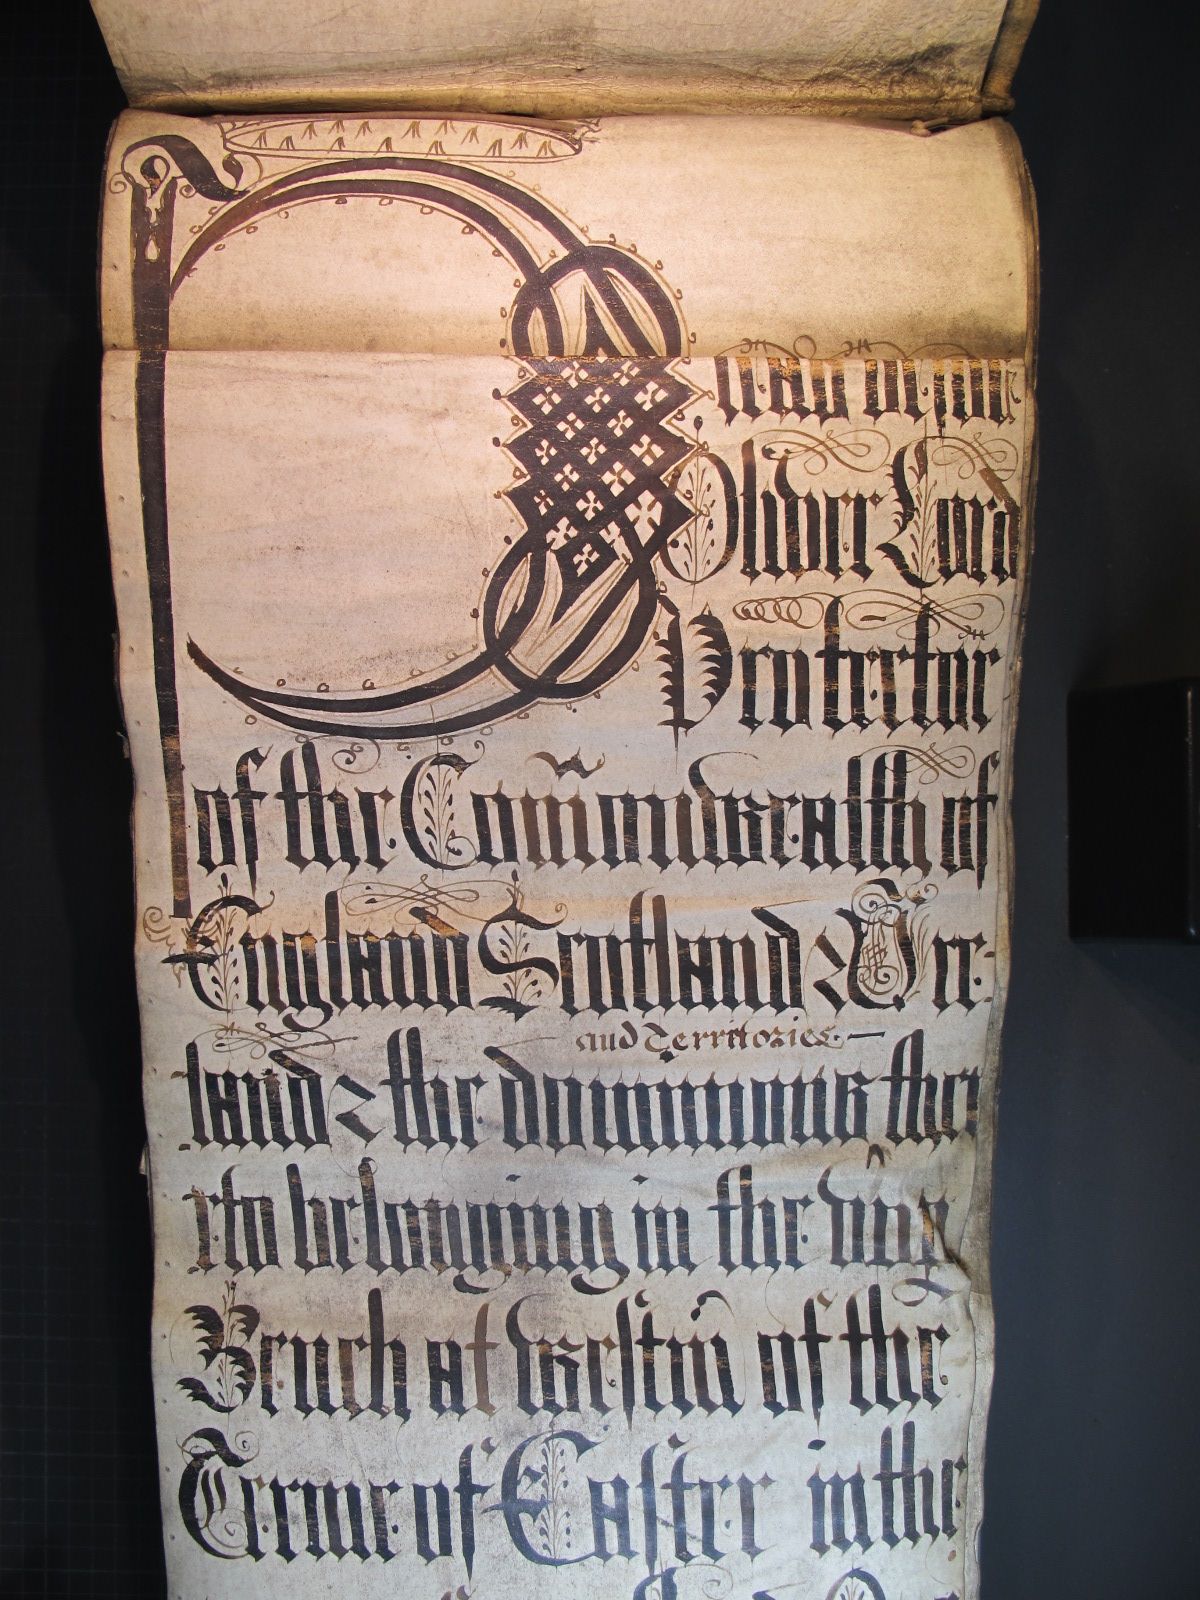 Pleas before
Oliver Lord
Protector
of the Com̄onwealth of
England Scotland & Ire-
and Territories
land & the dominions the
rto belonging in the upp
Bench at Westm̄ of the
Terme of Easter in the